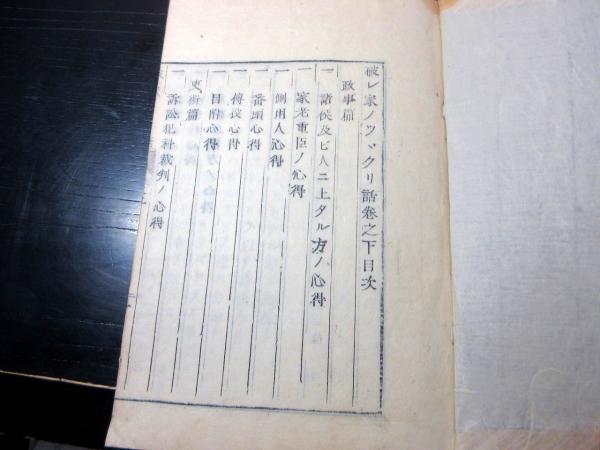 破レ家ノツヾクリ話卷之下目次
政事篇
一 諸侯及ビ人ニ上タル方ノ心得
一 家老重臣ノ心得
一 側用人心得
一 番頭心得
一 傳役心得
一 目附心得
吏術篇
一 訴訟犯科裁判ノ心得